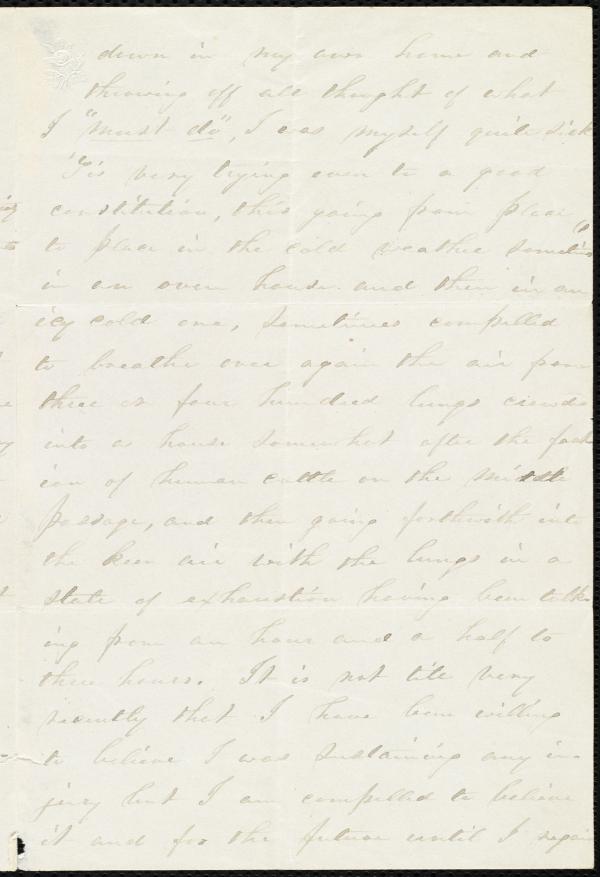 down in my own home and
throwing off all thought of what
I "must do", I was myself quite sick
'Tis very trying even to a good
constitution, this going from place
to place in the cold weather sometimes
in an oven house and then in an
icy cold one, sometimes compelled
to breathe over again the air from
three or four hundred lungs crowded
into a house somewhat after the fash
ion of human cattle on the middle
passage, and then going forthwith into
the keen air with the lungs in a
state of exhaustion having been talk
ing from an hour and a half to
three hours. It is not till very
recently that I have been willing
to believe I was sustaining any in-
jury but I am compelled to believe
it and for the future until I regain